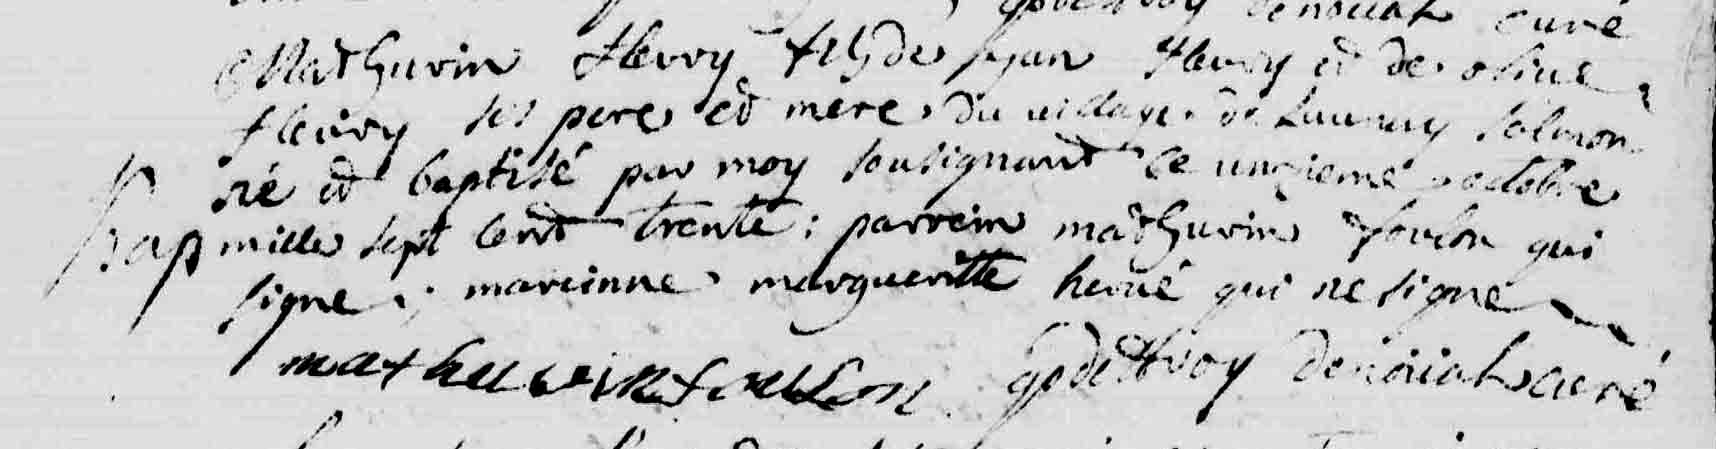 godeffroy denoual curé
Mathurin fleury fils de jan fleury et de olive
fleury ses pere et mere du village de Launay salmon
né et baptisé par moy sousignant ce unzieme octobre
Bap mille sept cent trente ; parrein mathurin foulon qui
signe ; mareinne margueritte hervé qui ne signe
mathurin foullon godeffroy denoual curé